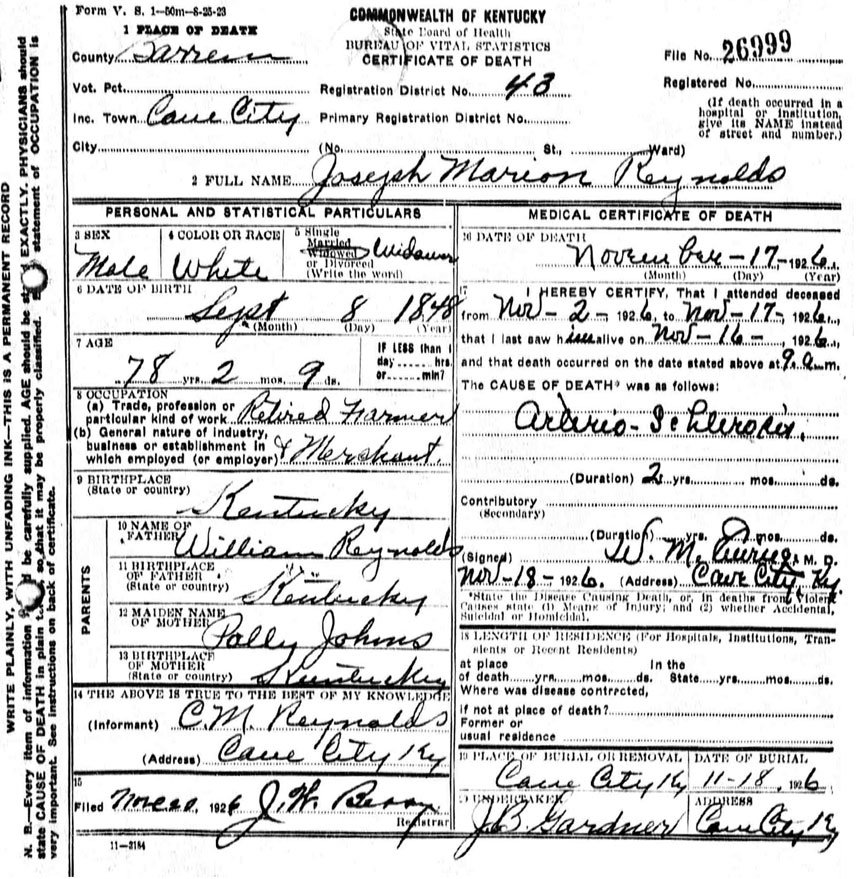 Form V. S. 1-50m-8-25-23
COMMONWEALTH OF KENTUCKY
State Board of Health
BUREAU OF VITAL STATISTICS
CERTIFICATE OF DEATH
File No. 26999
Registered No.
(If death occurred in a hospital or institution, give its NAME instead of street and number.)
1 PLACE OF DEATH
County Barren
Vot. Pct.
Registration District No. 43
Inc. Town Cave City
Primary Registration District No.
City (No. St., Ward)
2 FULL NAME Joseph Marion Reynolds
PERSONAL AND STATISTICAL PARTICULARS
3 SEX
Male
4 COLOR OR RACE
White
5 Single
Married
Widowed
or Divorced
(Write the word)
Widower
6 DATE OF BIRTH
Sept 8 1848
(Month) (Day) (Year)
7 AGE
78 yrs. 2 mos. 9 ds.
IF LESS than 1
day hrs.
or min?
8 OCCUPATION
(a) Trade, profession or
particular kind of work Retired Farmer
(b) General nature of industry,
business or establishment in
which employed (or employer) & Merchant.
9 BIRTHPLACE
(State or country)
Kentucky
PARENTS
10 NAME OF
FATHER
William Reynolds
11 BIRTHPLACE
OF FATHER
(State or country)
Kentucky
12 MAIDEN NAME
OF MOTHER
Polly Johns
13 BIRTHPLACE
OF MOTHER
(State or country)
Kentucky
14 THE ABOVE IS TRUE TO THE BEST OF MY KNOWLEDGE
(Informant) C.M. Reynolds
(Address) Cave City Ky
15
Filed 1926 J.W. Berry
Registrar
11-3184
MEDICAL CERTIFICATE OF DEATH
16 DATE OF DEATH
November-17-1926.
(Month) (Day) (Year)
17 I HEREBY CERTIFY, That I attended deceased
from Nov-2-1926, to Nov-17-1926,
that I last saw him alive on Nov-16-1926,
and that death occurred on the date stated above at 9 a.m.
The CAUSE OF DEATH* was as follows:
Arterio-Schlerosis.
(Duration) 2 yrs. mos. ds.
Contributory
(Secondary)
(Duration) yrs. mos. ds.
(Signed) W. M. M. D.
Nov-18-1926. (Address) Cave City Ky
*State the Disease Causing Death, or, in deaths from Violent
Causes state (1) Means of Injury; and (2) whether Accidental,
Suicidal or Homicidal.
18 LENGTH OF RESIDENCE (For Hospitals, Institutions, Transients or Recent Residents)
at place In the
of death yrs. mos. ds. State yrs. mos. ds.
Where was disease contrcted,
if not at place of death?
Former or
usual residence
19 PLACE OF BURIAL OR REMOVAL
Cave City Ky
DATE OF BURIAL
11-18, 1926
20 UNDERTAKER
J.B. Gardner
ADDRESS
Cave City Ky
WRITE PLAINLY, WITH UNFADING INK—THIS IS A PERMANENT RECORD
N. B.—Every item of information be carefully supplied. AGE should be EXACTLY. PHYSICIANS should
state CAUSE OF DEATH in plain so that it may be properly classified. statement of OCCUPATION is
very important. See instructions on back of certificate.